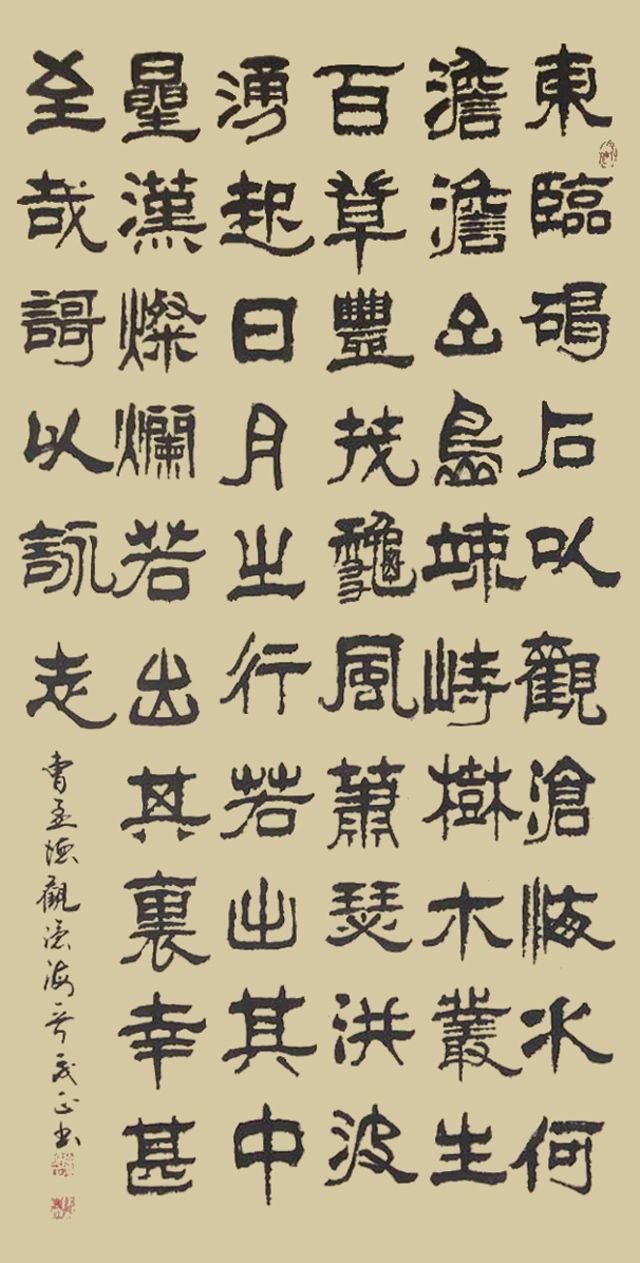 東臨碣石以觀滄海水何
澹澹山島竦峙樹木叢生
百草豐茂龝風蕭瑟洪波
湧起日月之行若出其中
星漢燦爛若出其裏幸甚
至哉謌以詠志
曹孟德觀滄海